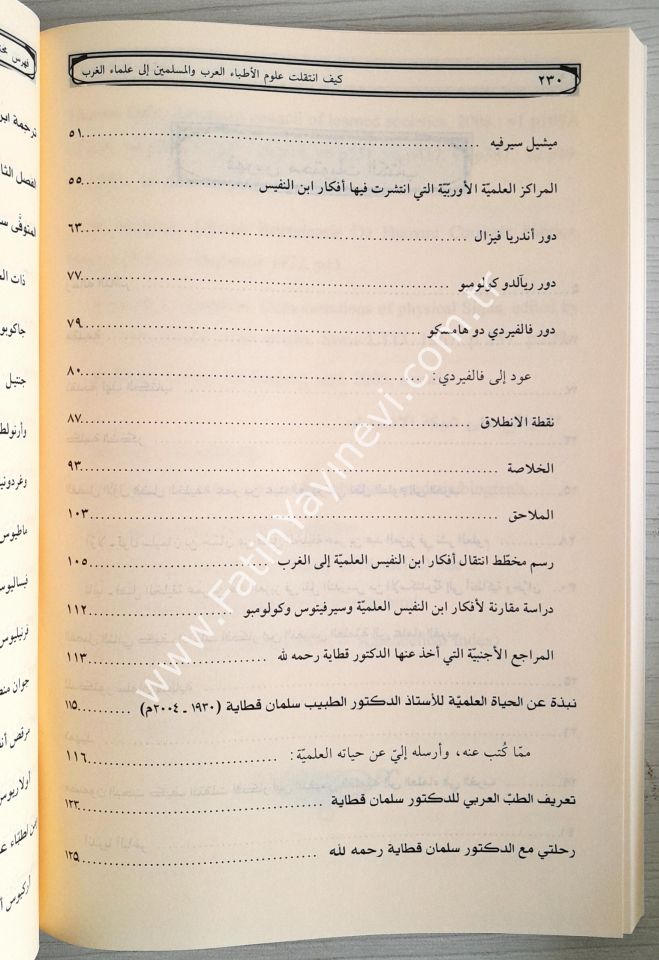 ٢٣٠ كيف انتقلت علوم الأطباء العرب والمسلمين إلى علماء الغرب
ميشيل سيرفيه ٥١
المراكز العلميّة الأوربيّة التي انتشرت فيها أفكار ابن النفيس ٥٥
دور أندريا فيزال ٦٣
دور ريآلدو كرلومبو ٧٧
دور فالفيردي دو هامسكو ٧٩
عود إلى فالفيردي: ٨٠
نقطة الانطلاق ٨٧
الخلاصة ٩٣
الملاحق ١٠٣
رسم مخطّط انتقال أفكار ابن النفيس العلميّة إلى الغرب ١٠٥
دراسة مقارنة لأفكار ابن النفيس العلميّة وسيرفيتوس وكولومبو ١١٢
المراجع الأجنبيّة التي أخذ عنها الدكتور قطاية رحمه لله ١١٣
نبذة عن الحياة العلميّة للأستاذ الدكتور الطبيب سلمان قطاية (١٩٣٠ ـ ٢٠٠٤م) ١١٥
ممّا كُتب عنه، وأرسله إليّ عن حياته العلميّة: ١١٦
تعريف الطبّ العربي للدكتور سلمان قطاية ١٢٣
رحلتي مع الدكتور سلمان قطاية رحمه لله ١٢٥
www.FatihYayinevi.com.tr
ترجمة
الفصل
ذات
جنتيل
وأرنولط
ماطيوس
فيساليوس
جوان